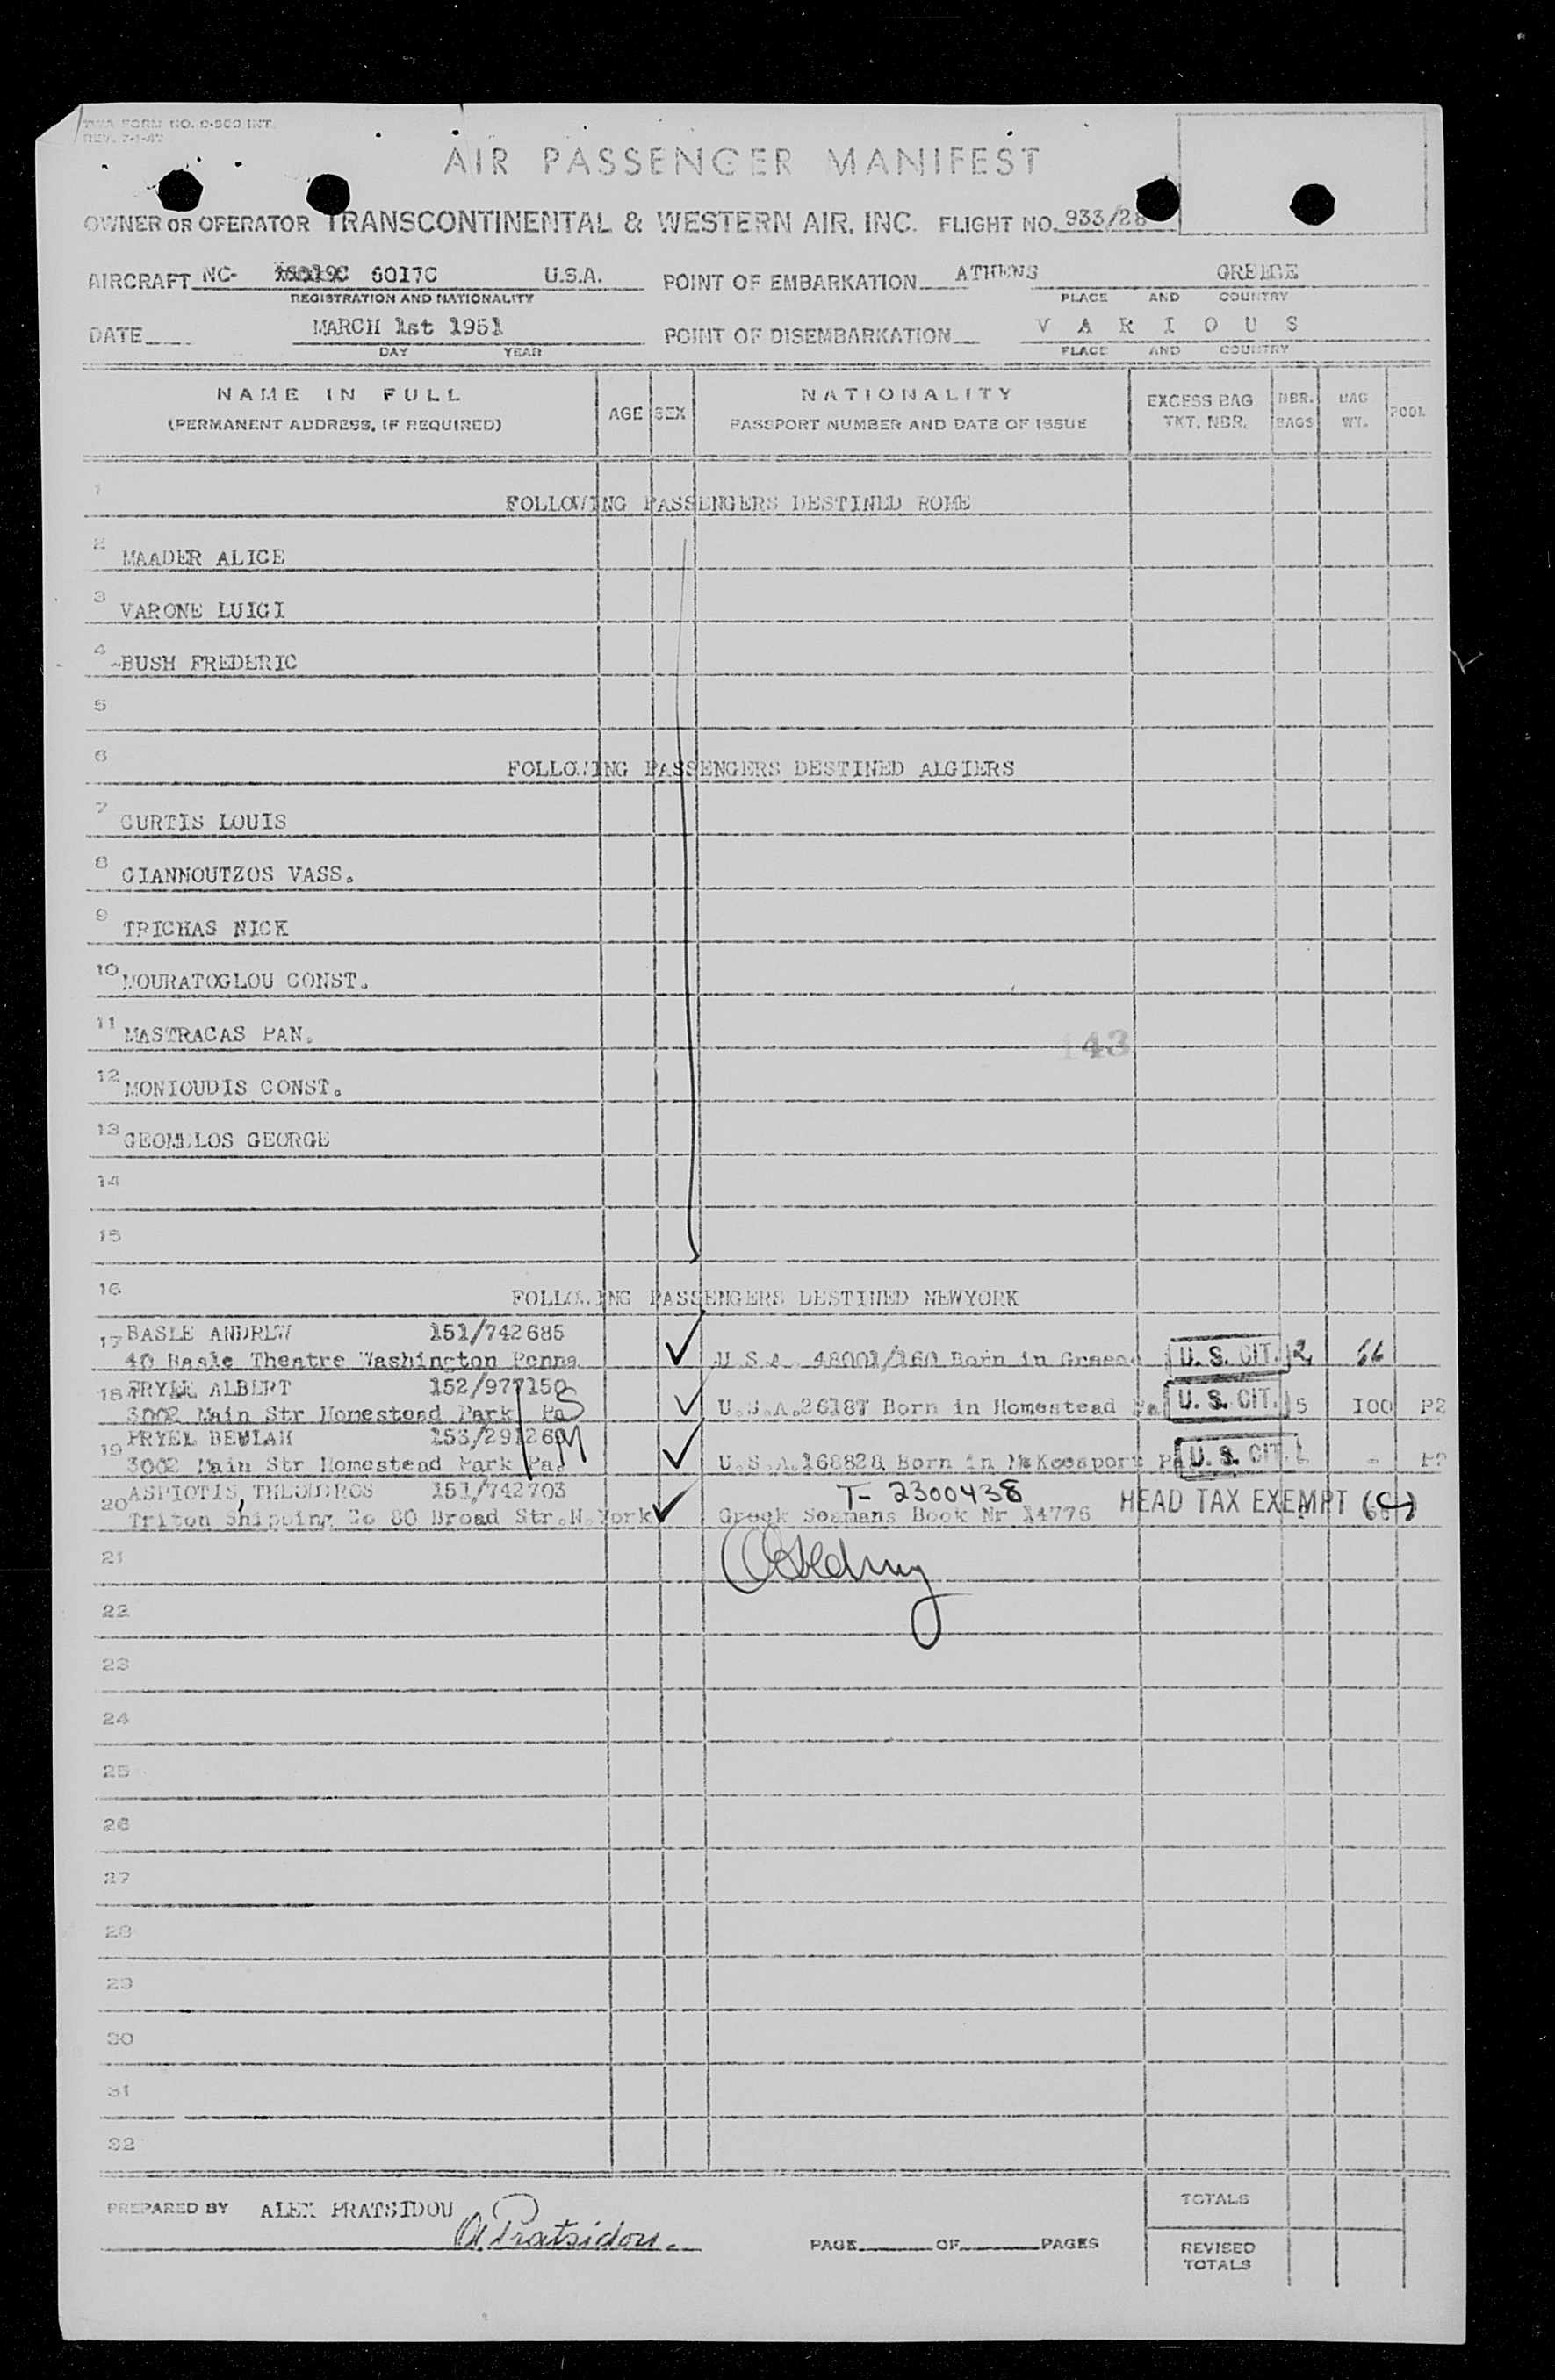 TWA FORM NO. 0-500 INT.
REV. 7-1-47
AIR PASSENGER MANIFEST
OWNER OR OPERATOR TRANSCONTINENTAL & WESTERN AIR, INC. FLIGHT NO. 933/28
AIRCRAFT NC- 6017C U.S.A. POINT OF EMBARKATION ATHENS GREECE
REGISTRATION AND NATIONALITY PLACE AND COUNTRY
DATE MARCH 1st 1951 POINT OF DISEMBARKATION V A R I O U S
DAY YEAR PLACE AND COUNTRY
NAME IN FULL AGE SEX NATIONALITY EXCESS BAG NBR. BAG POOL
(PERMANENT ADDRESS, IF REQUIRED) PASSPORT NUMBER AND DATE OF ISSUE TKT. NBR. BAGS WT.
1 FOLLOWING PASSENGERS DESTINED ROME
2 MAADER ALICE
3 VARONE LUIGI
4 -BUSH FREDERIC
5
6 FOLLOWING PASSENGERS DESTINED ALGIERS
7 CURTIS LOUIS
8 GIANNOUTZOS VASS.
9 TRICHAS NICK
10 MOURATOGLOU CONST.
11 MASTRACAS PAN.
143
12 MONIOUDIS CONST.
13 GEOMELOS GEORGE
14
15
16 FOLLOWING PASSENGERS DESTINED NEWYORK
17 BASLE ANDREW 151/742685
40 Basle Theatre Washington Penna U.S.A. 48001/160 Born in Greece U. S. CIT. 2 66
18 PRYEL ALBERT 152/977150
3002 Main Str Homestead Park Pa U.S.A.26187 Born in Homestead Pa U. S. CIT. 5 100 P2
19 PRYEL BEULAH 153/291260
3002 Main Str Homestead Park Pa U.S.A.168828 Born in McKeesport Pa U. S. CIT. - P2
20 ASPIOTIS, THEODOROS 151/742703 T- 2300438 HEAD TAX EXEMPT (C)
Triton Shipping Co 80 Broad Str.N.York Greek Seamans Book Nr 14776
21
22
23
24
25
26
27
28
29
30
31
32
PREPARED BY ALEX PRATSIDOU TOTALS
A. Pratsidou. PAGE OF PAGES REVISED
TOTALS